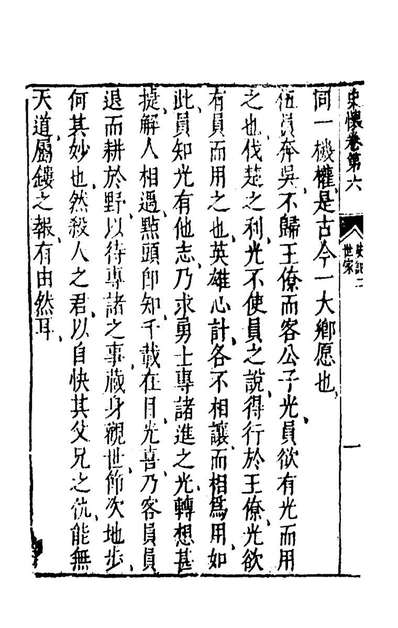 史懷卷第六
史記二
世家
一
同一機權是古今一大鄉愿也
伍員奔吳不歸王僚而客公子光員欲有光而用
之也伐楚之利光不使員之說得行於王僚光欲
有員而用之也英雄心計各不相讓而相爲用如
此員知光有他志乃求勇士專諸進之光轉想甚
捷解人相遇點頭即知千載在目光喜乃客員員
退而耕於野以待專諸之事藏身觀世節次地步
何其妙也然殺人之君以自快其父兄之仇能無
天道屬鏤之報有由然耳